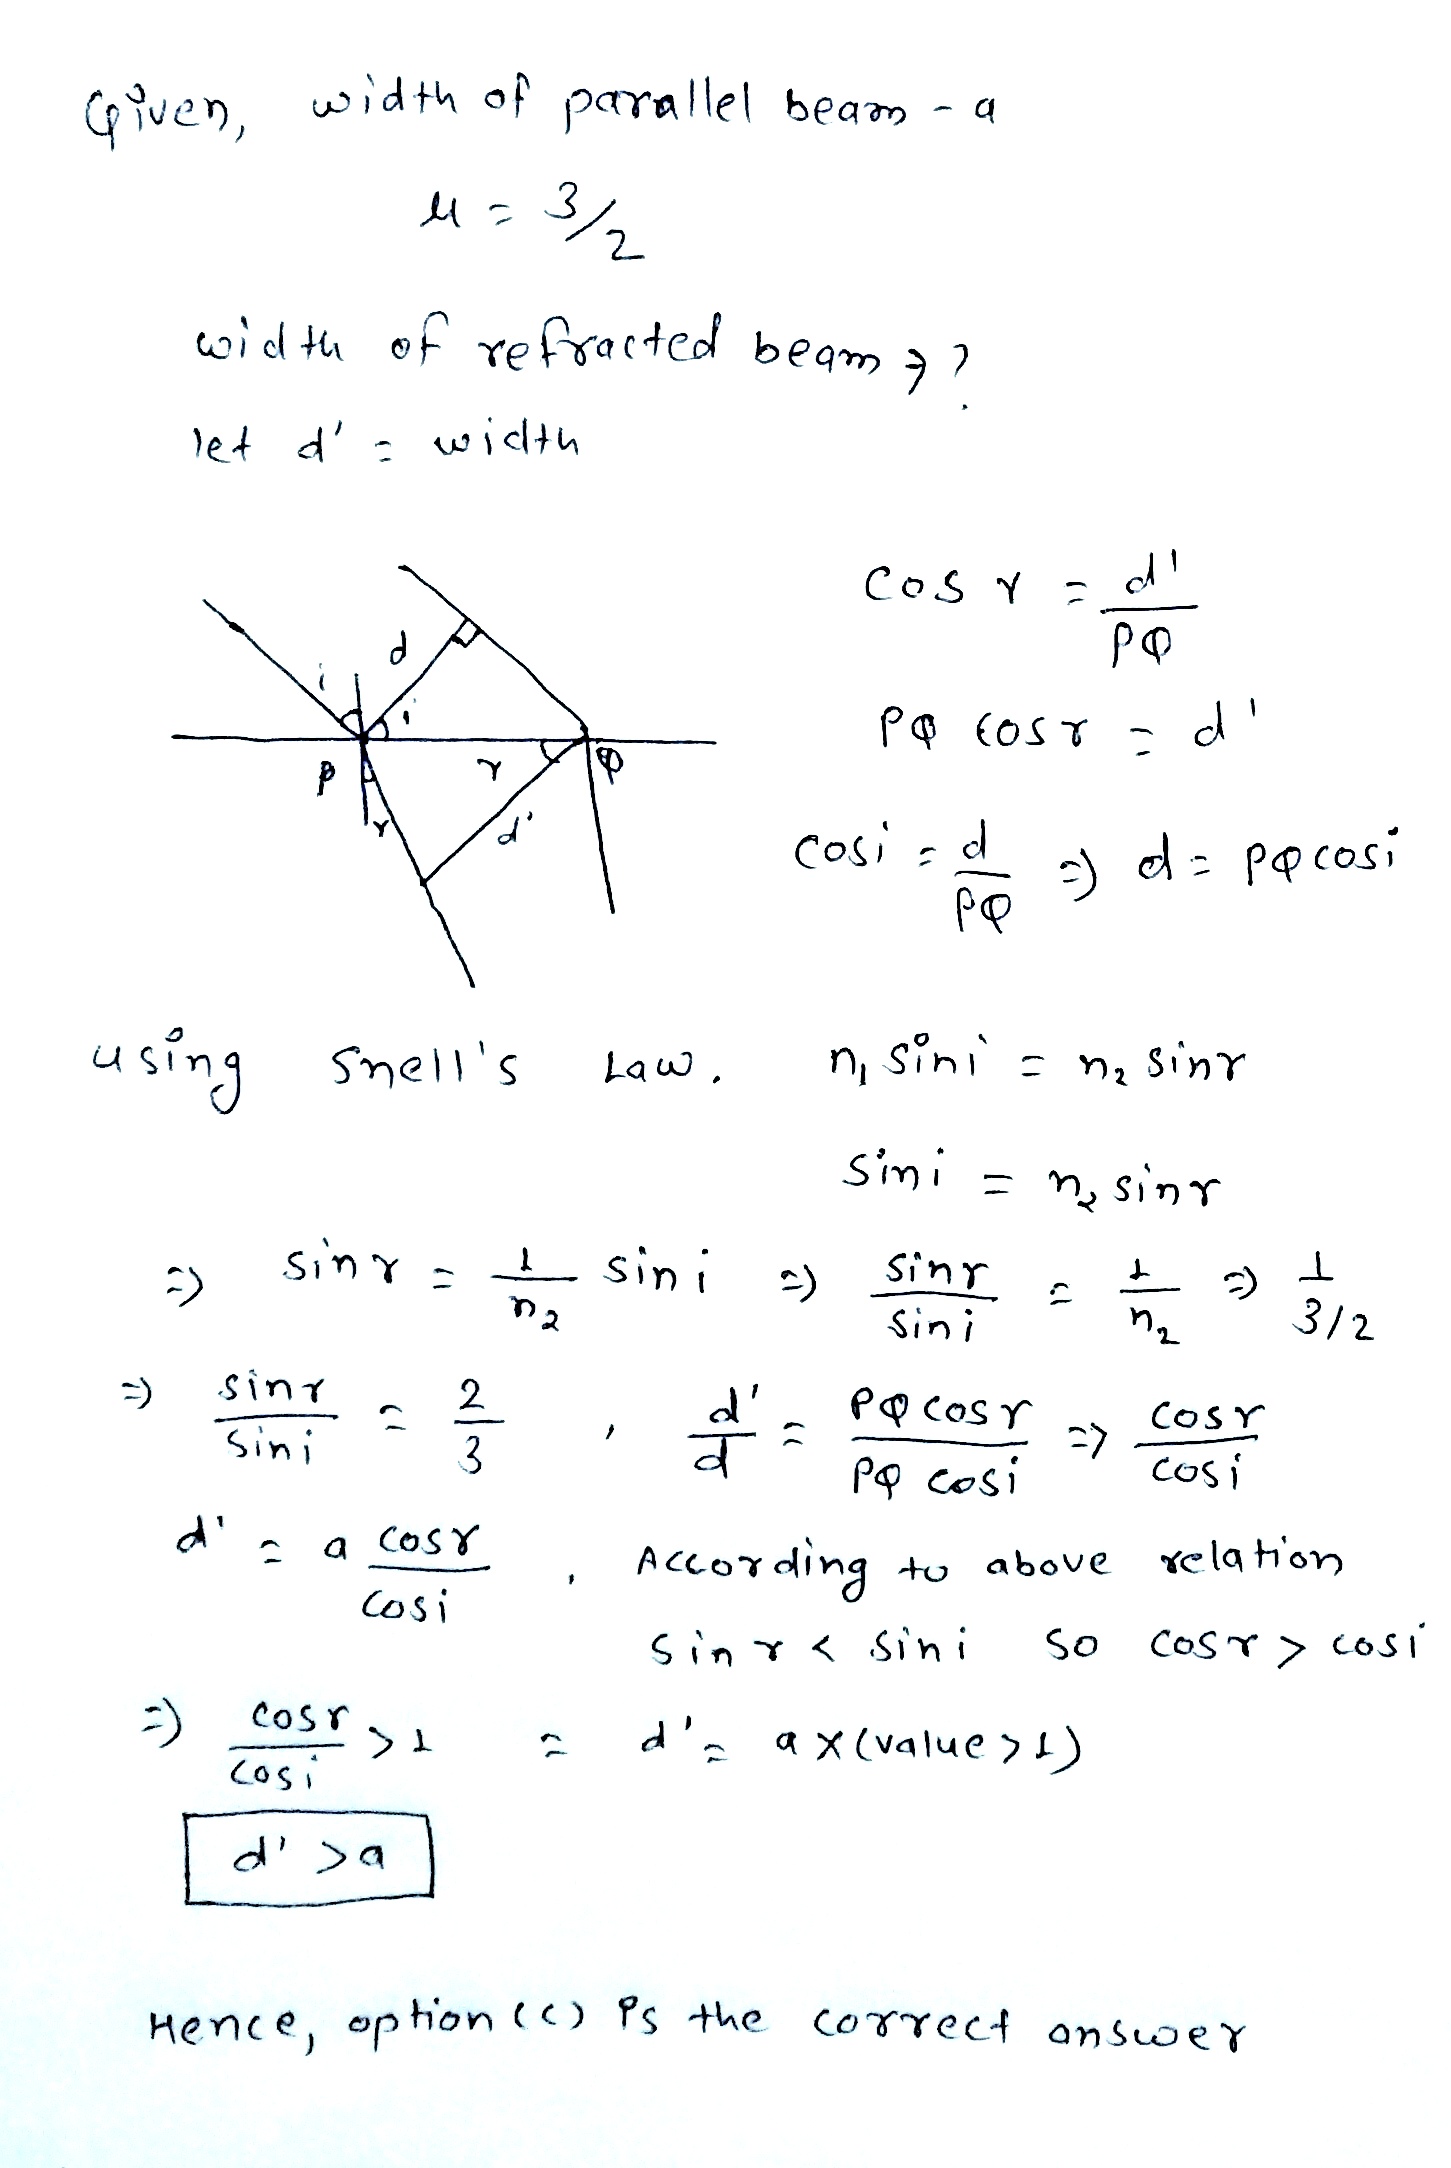 Given, width of parallel beam - a
μ = 3/2
width of refracted beam → ?
let d' = width
cos r = d'/PQ
PQ cos r = d'
cos i = d/PQ => d = PQ cos i
i
d
i
P
r
Q
r
d'
using Snell's Law, n₁ sin i = n₂ sin r
sin i = n₂ sin r
=> sin r = 1/n₂ sin i => sin r/sin i = 1/n₂ => 1/3/2
=> sin r/sin i = 2/3 , d'/d = PQ cos r/PQ cos i => cos r/cos i
d' = a cos r/cos i , According to above relation
sin r < sin i so cos r > cos i
=> cos r/cos i > 1 = d' = a x (value > 1)
d' > a
Hence, option (c) is the correct answer